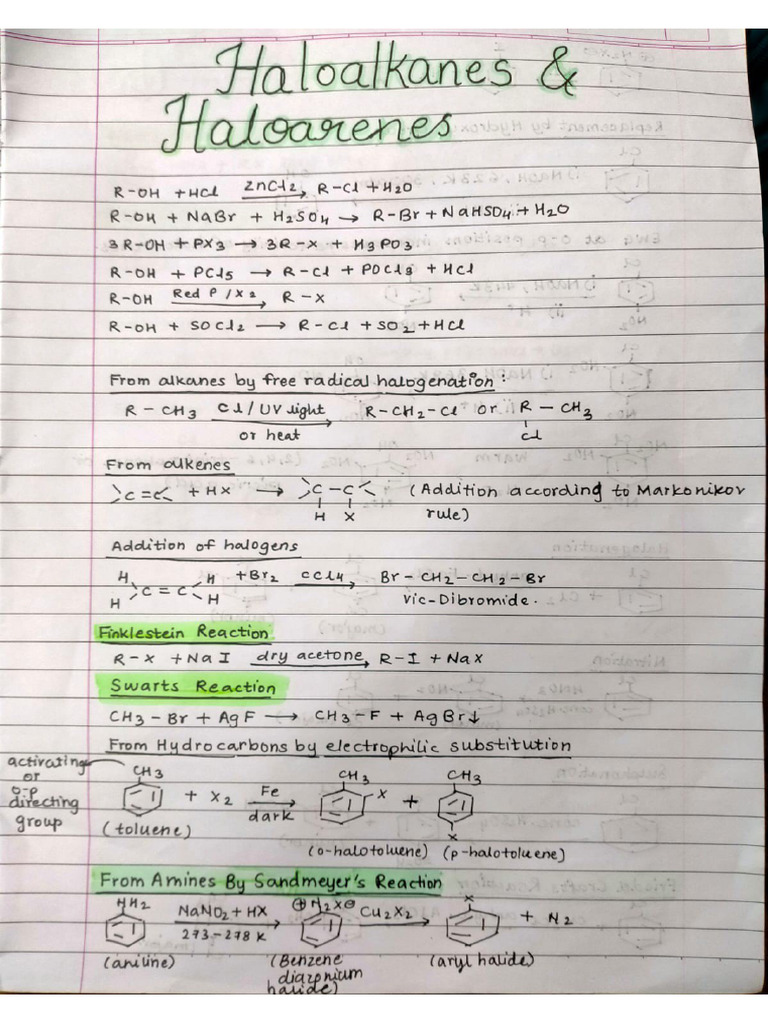 Haloalkanes &
Haloarenes
R-OH + HCl ZnCl2→ R-Cl + H2O
R-OH + NaBr + H2SO4 → R-Br + NaHSO4 + H2O
3R-OH + PX3 → 3R-X + H3PO3
R-OH + PCl5 → R-Cl + POCl3 + HCl
R-OH Red P / X2→ R-X
R-OH + SOCl2 → R-Cl + SO2 + HCl
From alkanes by free radical halogenation :
R - CH3 Cl / UV light→ R-CH2-Cl or R - CH3
or heat Cl
From alkenes
C=C + HX → C-C (Addition according to Markonikov
H X rule)
Addition of halogens
H H +Br2 CCl4→ Br-CH2-CH2-Br
C=C
H H vic-Dibromide.
Finklestein Reaction
R-X + NaI dry acetone→ R-I + NaX
Swarts Reaction
CH3-Br + AgF → CH3-F + AgBr↓
From Hydrocarbons by electrophilic substitution
activating
or
o-p
directing
group
CH3 CH3 CH3
+ X2 Fe→ X +
dark
(toluene) X
(o-halotoluene) (p-halotoluene)
From Amines By Sandmeyer's Reaction
NH2 ⊕N2X⊖ X
NaNO2 + HX→ Cu2X2→ + N2
273-278 K
(aniline) (Benzene (aryl halide)
diazonium
halide)